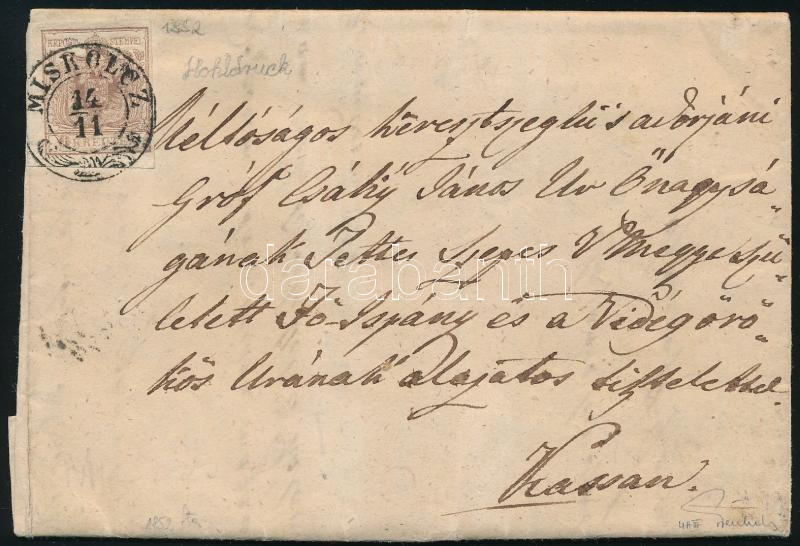 1852
Hohldruck
MISKOLCZ
14
11
Méltóságos keresztszeghi s adorjáni
Gróf Csáky János Ur Őnagysá„
gának Tettes Szepes Vmegye szü„
letett Fő-Ispány és a Vidég örö„
kös Urának alazatos tisztelettel.
darabanth
Kassan.
1852